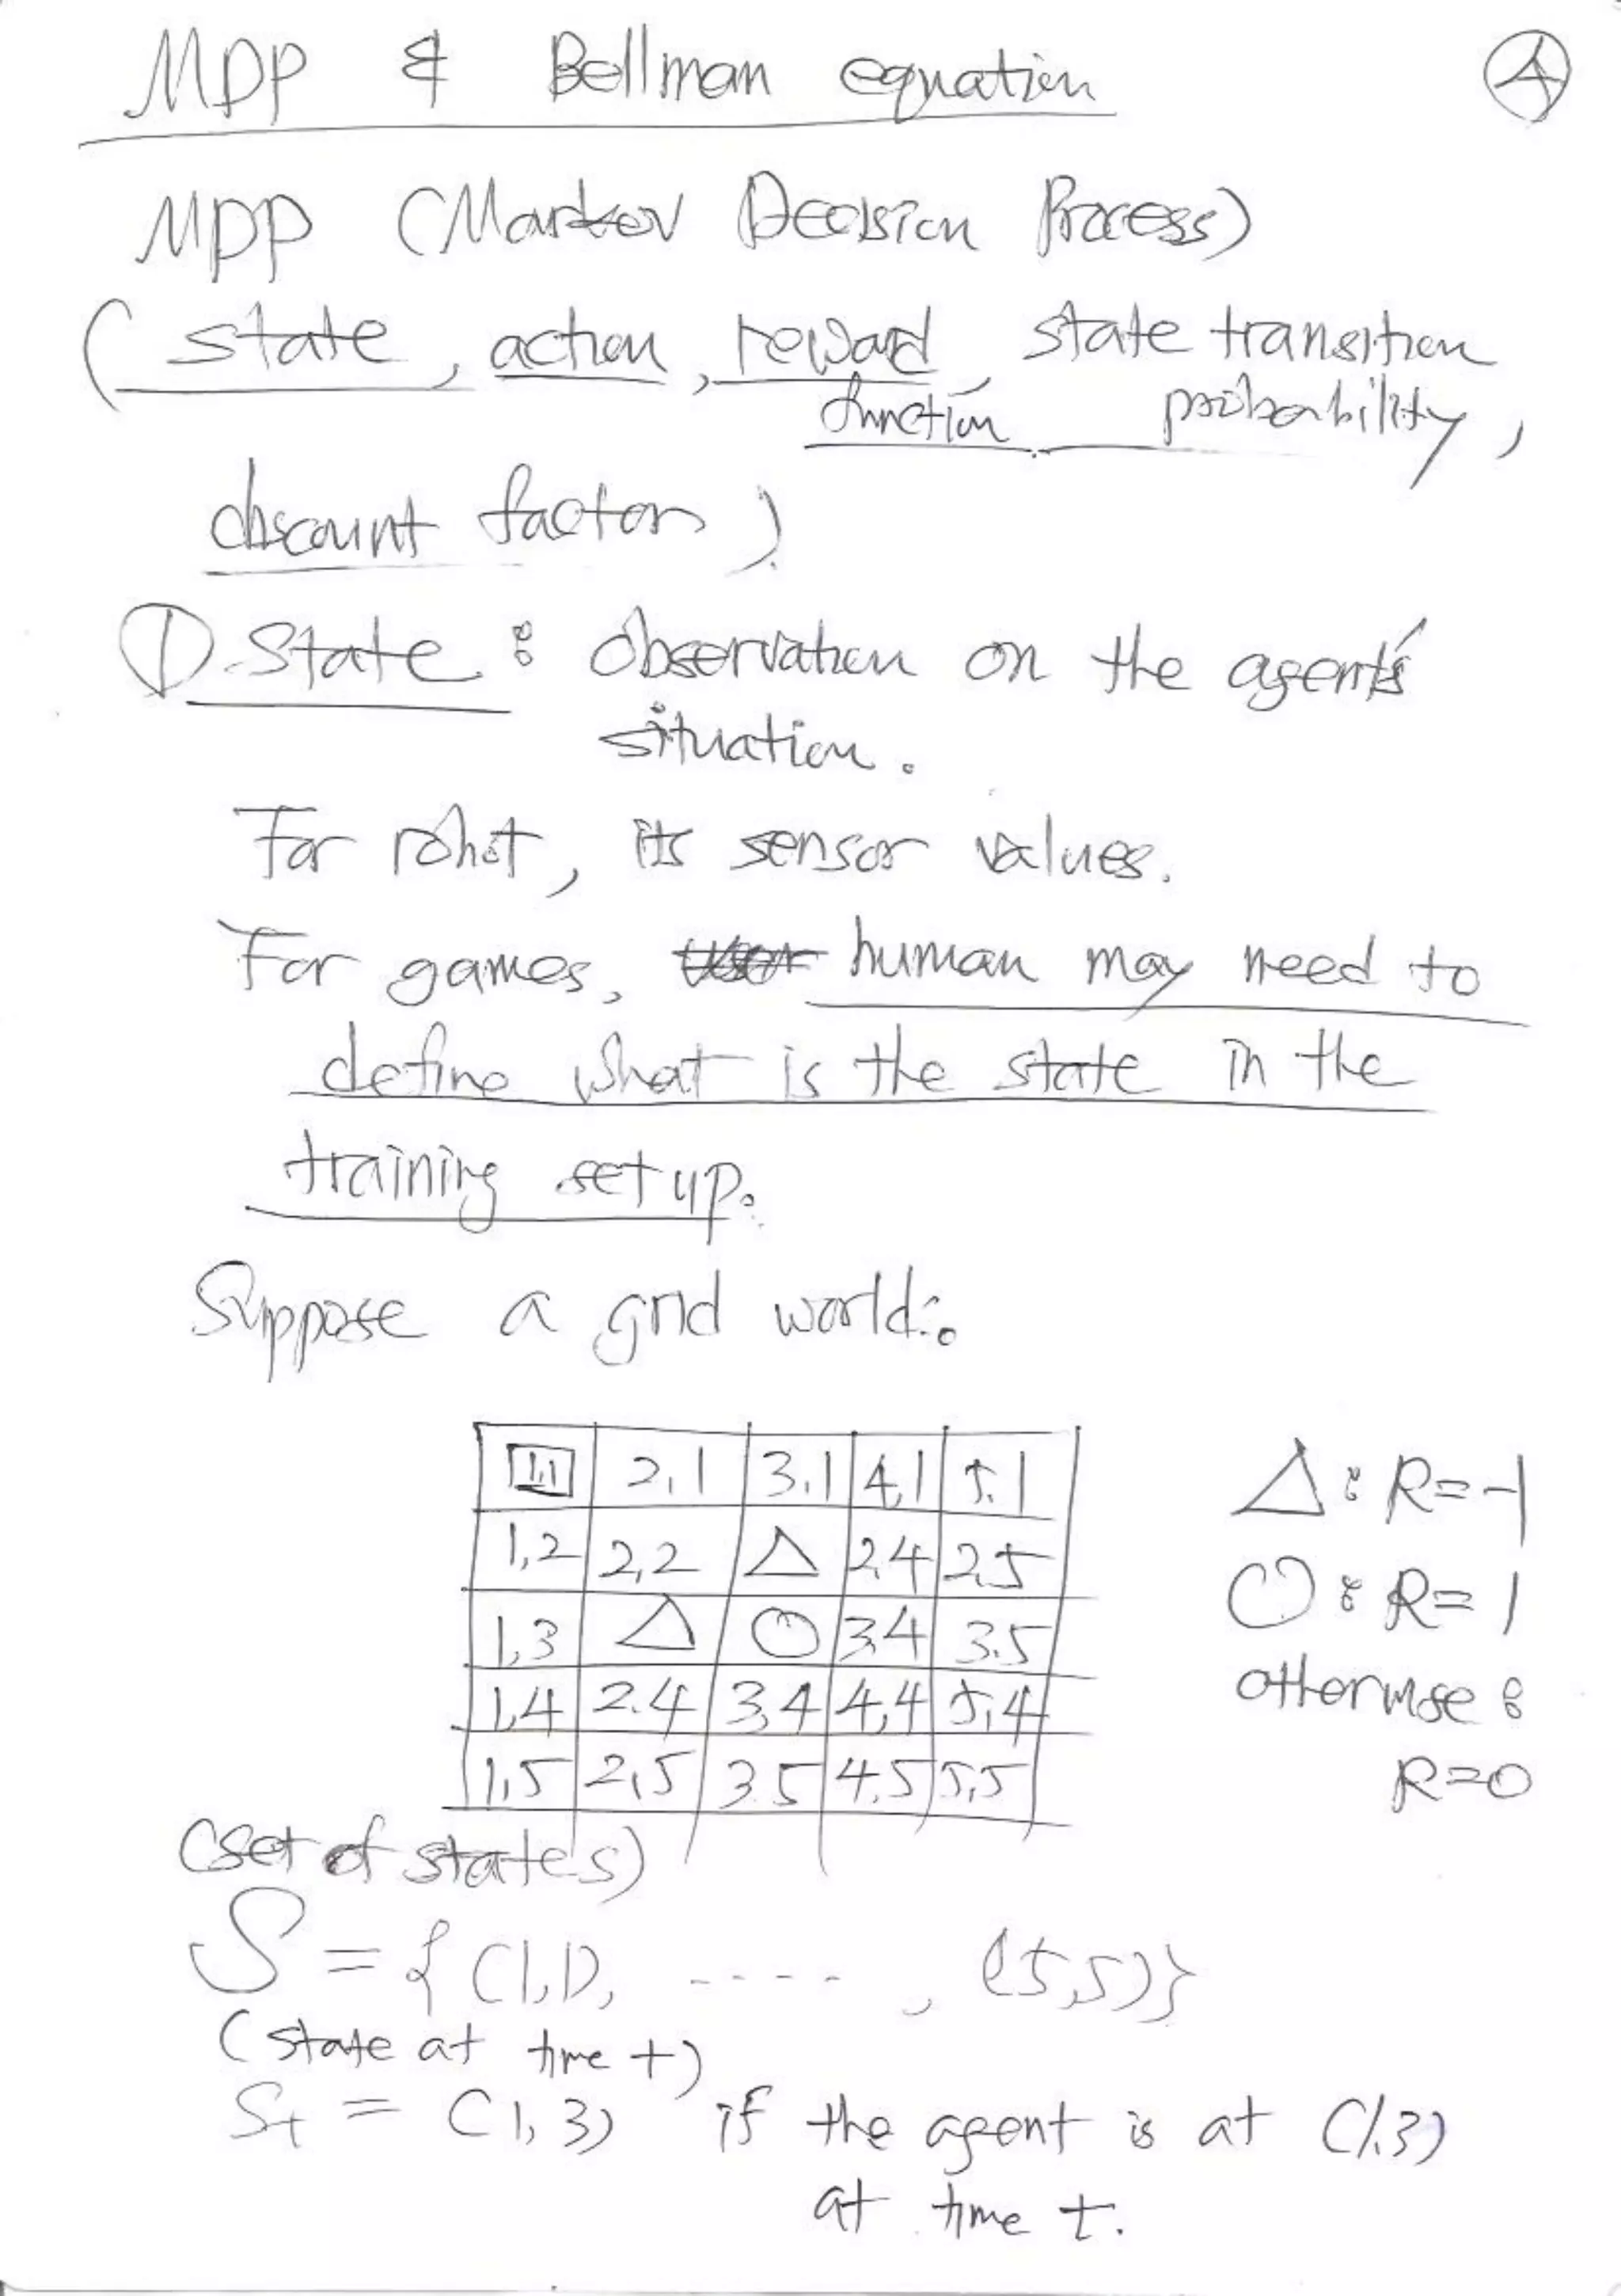 MDP & Bellman equation
4
MDP (Markov Decision Process)
(state, action, reward, state transition
function probability,
discount factor)
① State : observation on the agent's
situation.
For robot, its sensor values.
For games, human may need to
define what is the state in the
training set up.
Suppose a grid world:.
1,1 2,1 3,1 4,1 5,1
1,2 2,2 △ 2,4 2,5
1,3 △ ○ 3,4 3,5
1,4 2,4 3,4 4,4 5,4
1,5 2,5 3,5 4,5 5,5
△: R=-1
○: R=1
otherwise :
R=0
(set of states)
S = {(1,1), ·····, (5,5)}
(state at time t)
St = (1,3) if the agent is at (1,3)
at time t.